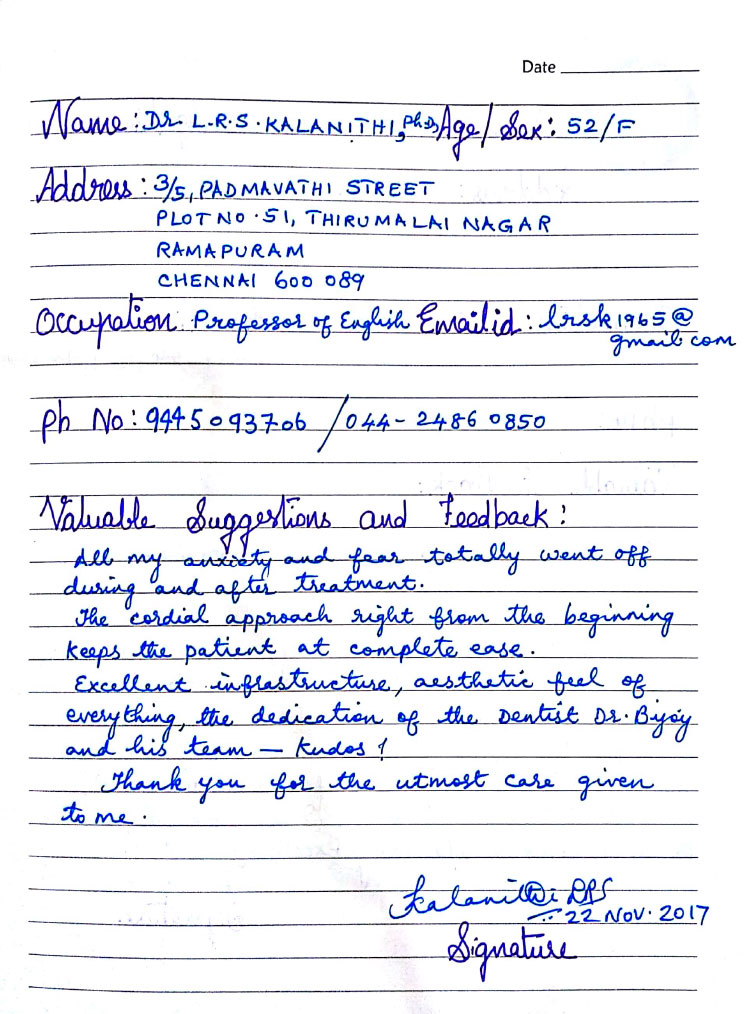 Date
Name: Dr L.R.S. KALANITHI, Ph.D, Age/Sex: 52/F
Address: 3/5, PADMAVATHI STREET
PLOT NO. 51, THIRUMALAI NAGAR
RAMAPURAM
CHENNAI 600 089
Occupation: Professor of English Email id: lrsk1965@
gmail.com
Ph No: 9445093706 / 044-2486 0850
Valuable Suggestions and Feedback:
All my anxiety and fear totally went off
during and after treatment.
The cordial approach right from the beginning
keeps the patient at complete ease.
Excellent infrastructure, aesthetic feel of
everything, the dedication of the Dentist Dr. Bijoy
and his team – Kudos!
Thank you for the utmost care given
to me.
Kalanithi LRS
22 NOV. 2017
Signature